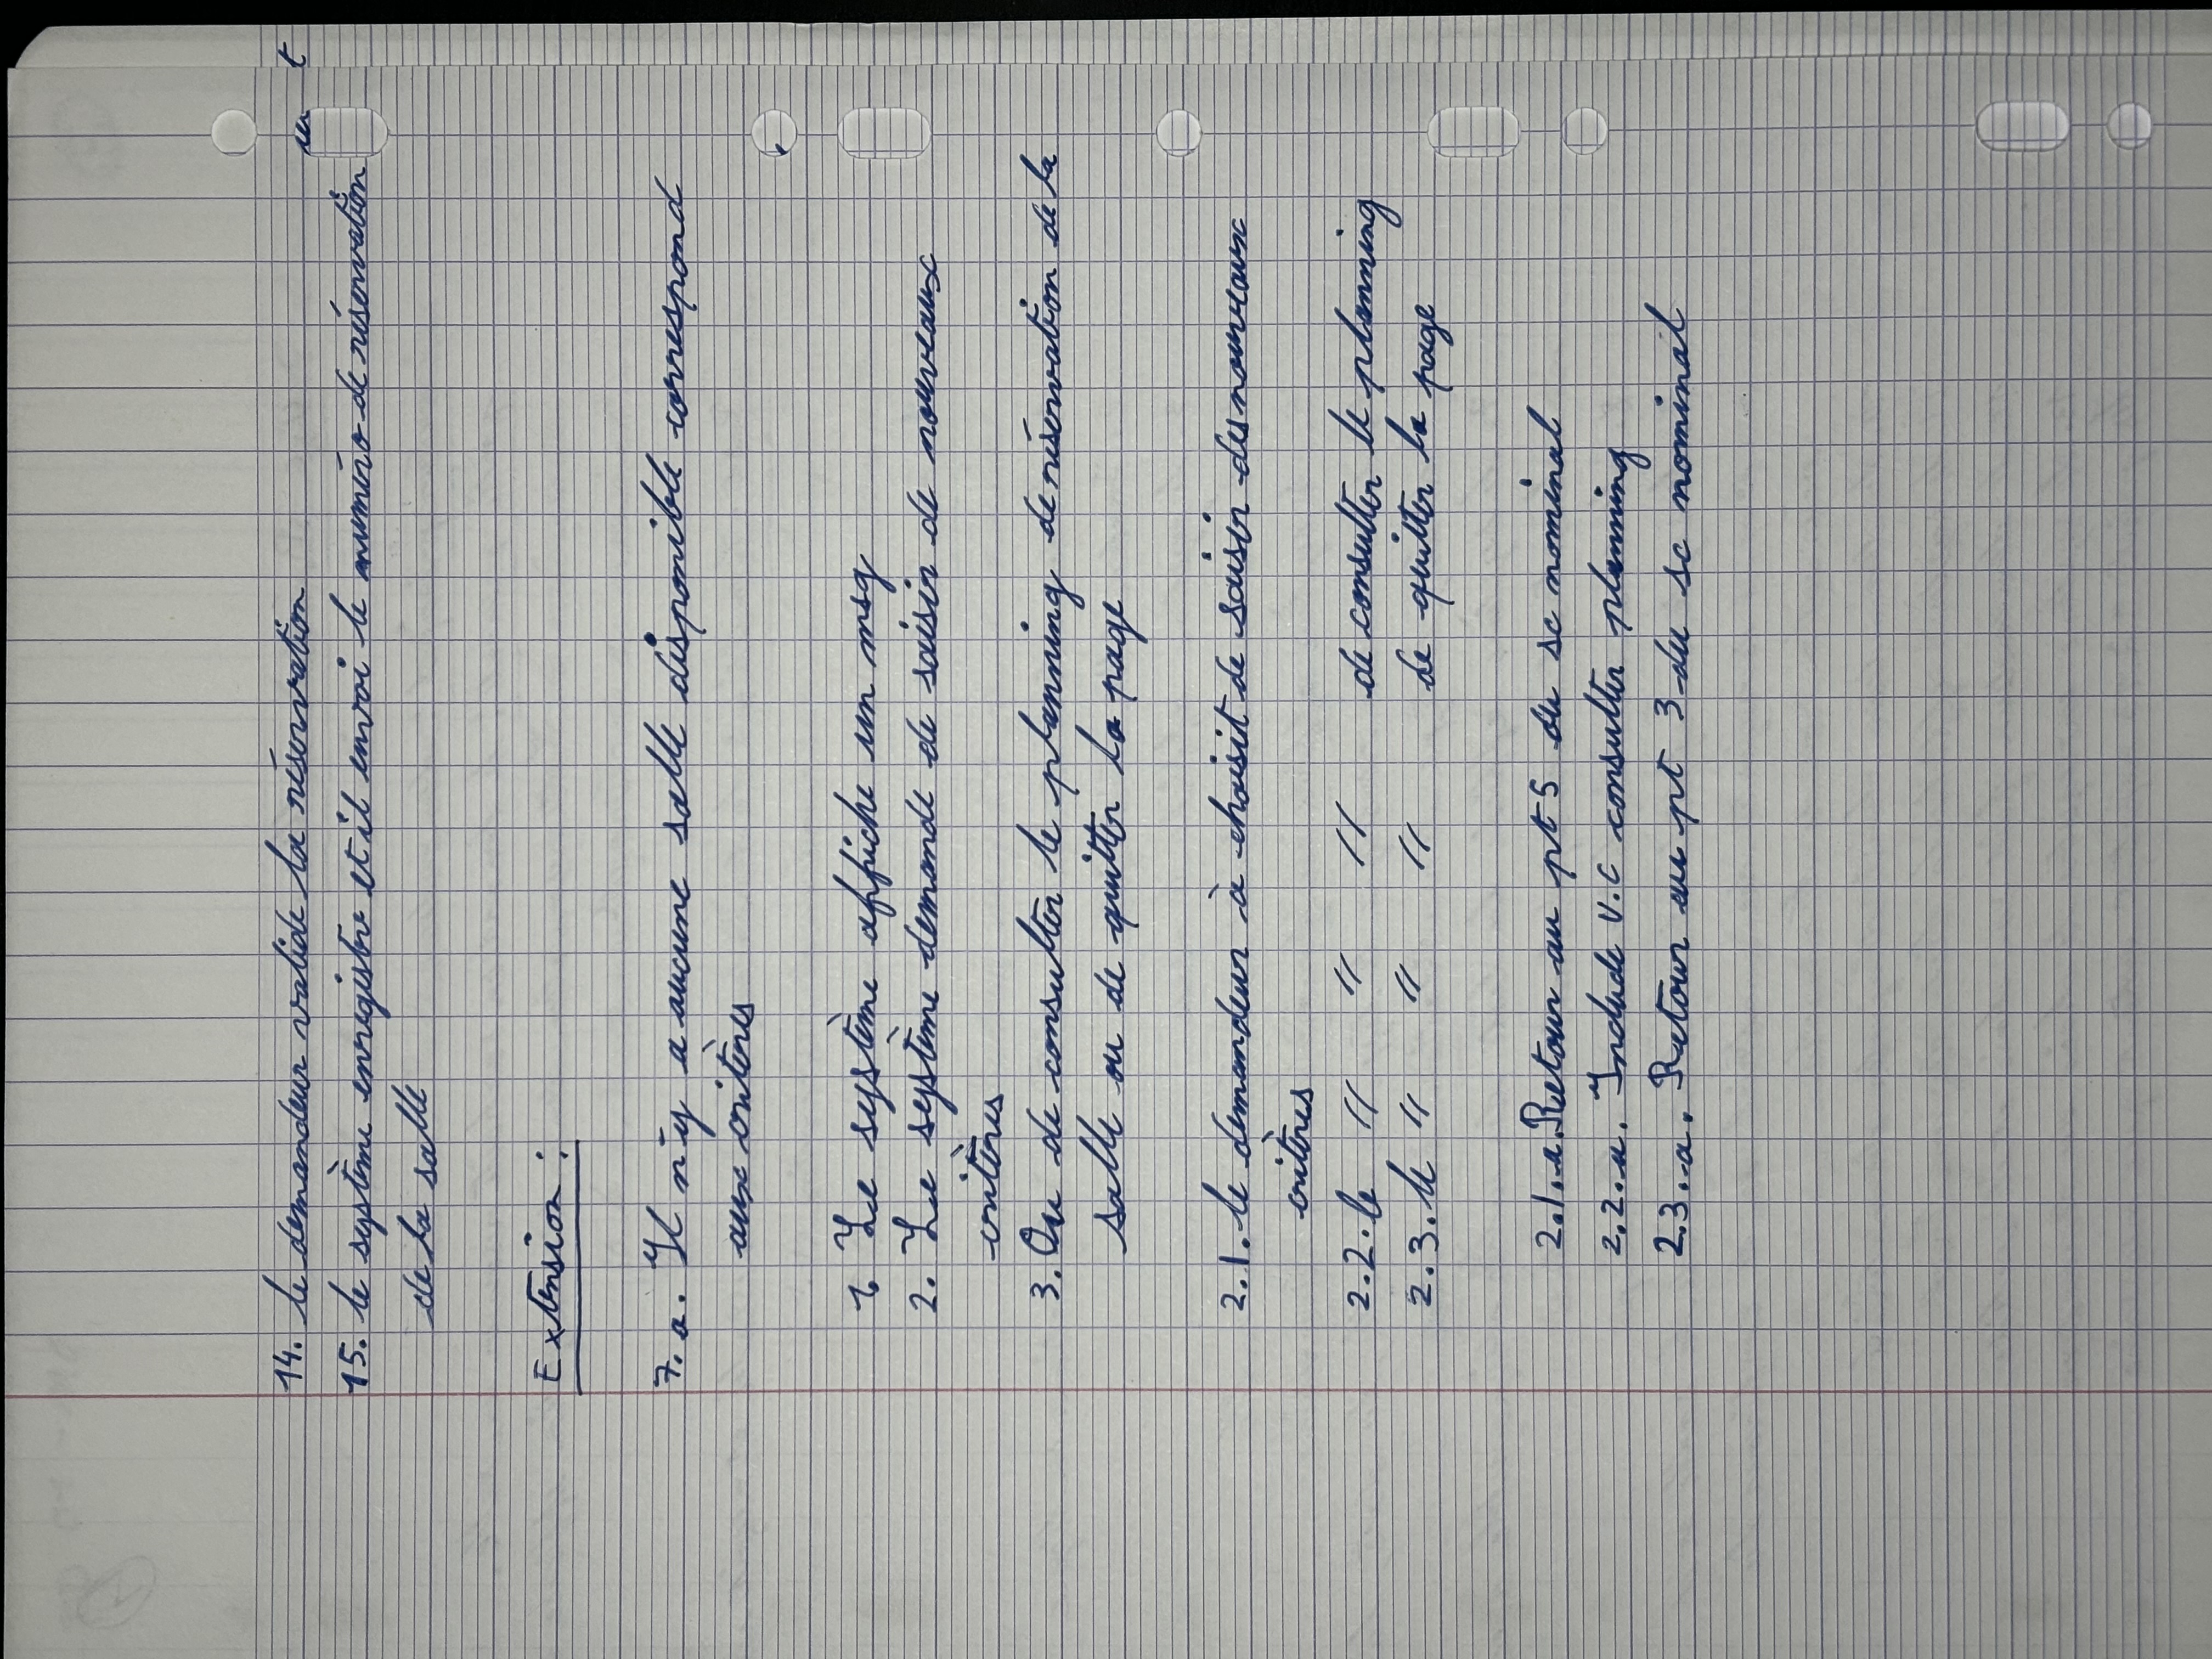 14. le demandeur valide la réservation
15. le système enregistre et il envoi le numéro de réservation
de la salle
Extension :
7.a. Il n'y a aucune salle disponible correspond
aux critères
1. Le système affiche un msg
2. Le système demande de saisir de nouveaux
critères
3. Ou de consulter le planning de réservation de la
salle ou de quitter la page
2.1. le demandeur à choisit de saisir des nouveaux
critères
2.2. le " " " de consulter le planning
2.3. le " " " de quitter la page
2.1.a. Retour au pt 5 du sc nominal
2.2.a. Include U.C consulter planning
2.3.a. Retour au pt 3 du sc nominal